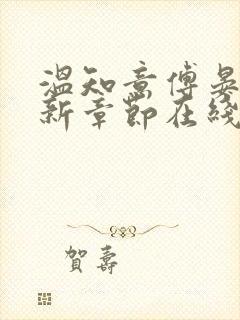 温知意傅晏
新章節在綫
賀壽